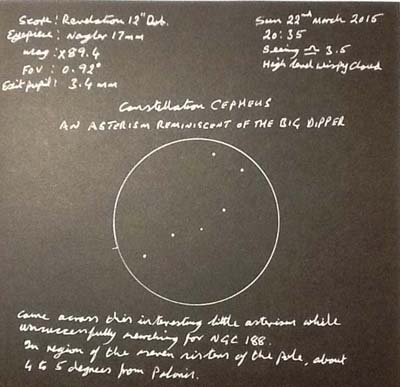 Scope: Revelation 12" Dob.
Eyepiece: Nagler 17mm
mag: x89.4
FOV: 0.92°
Exit pupil: 3.4 mm
Sun 22nd March 2015
20:35
Seeing ≏ 3.5
High level wispy Cloud
Constellation CEPHEUS
AN ASTERISM REMINISCENT OF THE BIG DIPPER
Came across this interesting little asterism while
unsuccessfully searching for NGC 188.
In region of the seven sisters of the pole, about
4 to 5 degrees from Polaris.